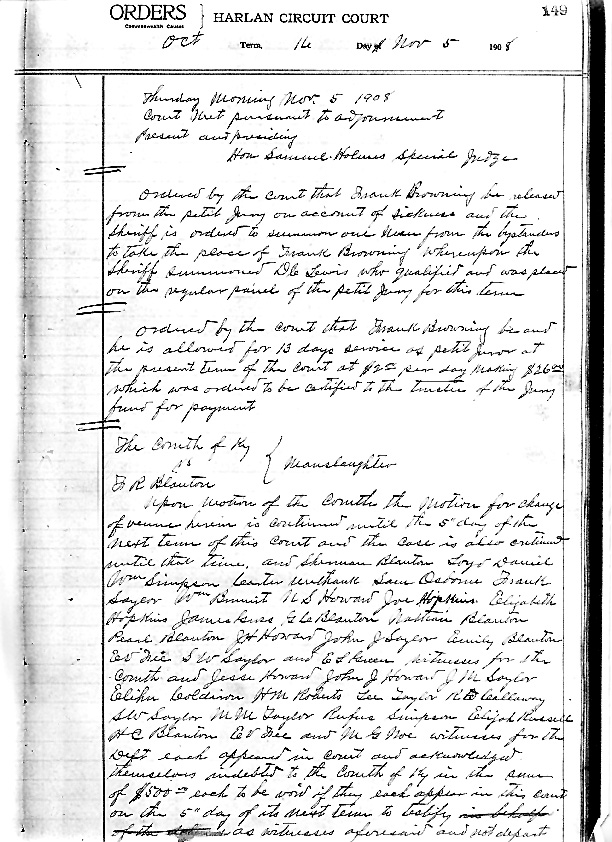 ORDERS
COMMONWEALTH CAUSES
HARLAN CIRCUIT COURT
149
Oct Term, 16 Day of Nov 5 1908
Thursday Morning Nov. 5 1908
Court Met pursuant to adjournment
Present and presiding
Hon Samuel Holmes Special Judge
Ordered by the court that Frank Browning be released
from the petit Jury on account of sickness and the
Sheriff is ordered to summon one man from the bystanders
to take the place of Frank Browning Whereupon the
Sheriff summoned D C Lewis who qualified and was placed
on the regular panel of the petit Jury for this term
Ordered by the court that Frank Browning be and
he is allowed for 13 days service as petit Juror at
the present term of the court at $2 00 per day making $26 00
which was ordered to be certified to the trustee of the Jury
fund for payment
The Comth of Ky
vs
Manslaughter
F R Blanton
Upon Motion of the Comth the Motion for change
of venue herein is continued until the 5" day of the
next term of this Court and the case is also continued
until that time, and Sherman Blanton Loyd Daniel
Wm Simpson Carter Wilhank Sam Osborne Frank
Saylor Wm Bennit N S Howard Joe Hopkins Elizabeth
Hopkins James G C Blanton Nathan Blanton
Pearl Blanton J H Howard John J Saylor Emily Blanton
E V Tice S W Saylor and E S witnesses for the
Comth and Jesse Howard John J Howard J M Saylor
Elihu Coldiron H M Roberts Lee Taylor Callaway
S W Saylor M M Taylor Rufus Simpson Elijah Russell
H C Blanton E V Tice and M G Noe witnesses for the
Deft each appeared in Court and acknowledged
themselves indebted to the Comth of Ky in the sum
of $500 00 each to be void if they each appear in this court
on the 5" day of its next term to testify in behalf
of the as witnesses aforesaid and not depart